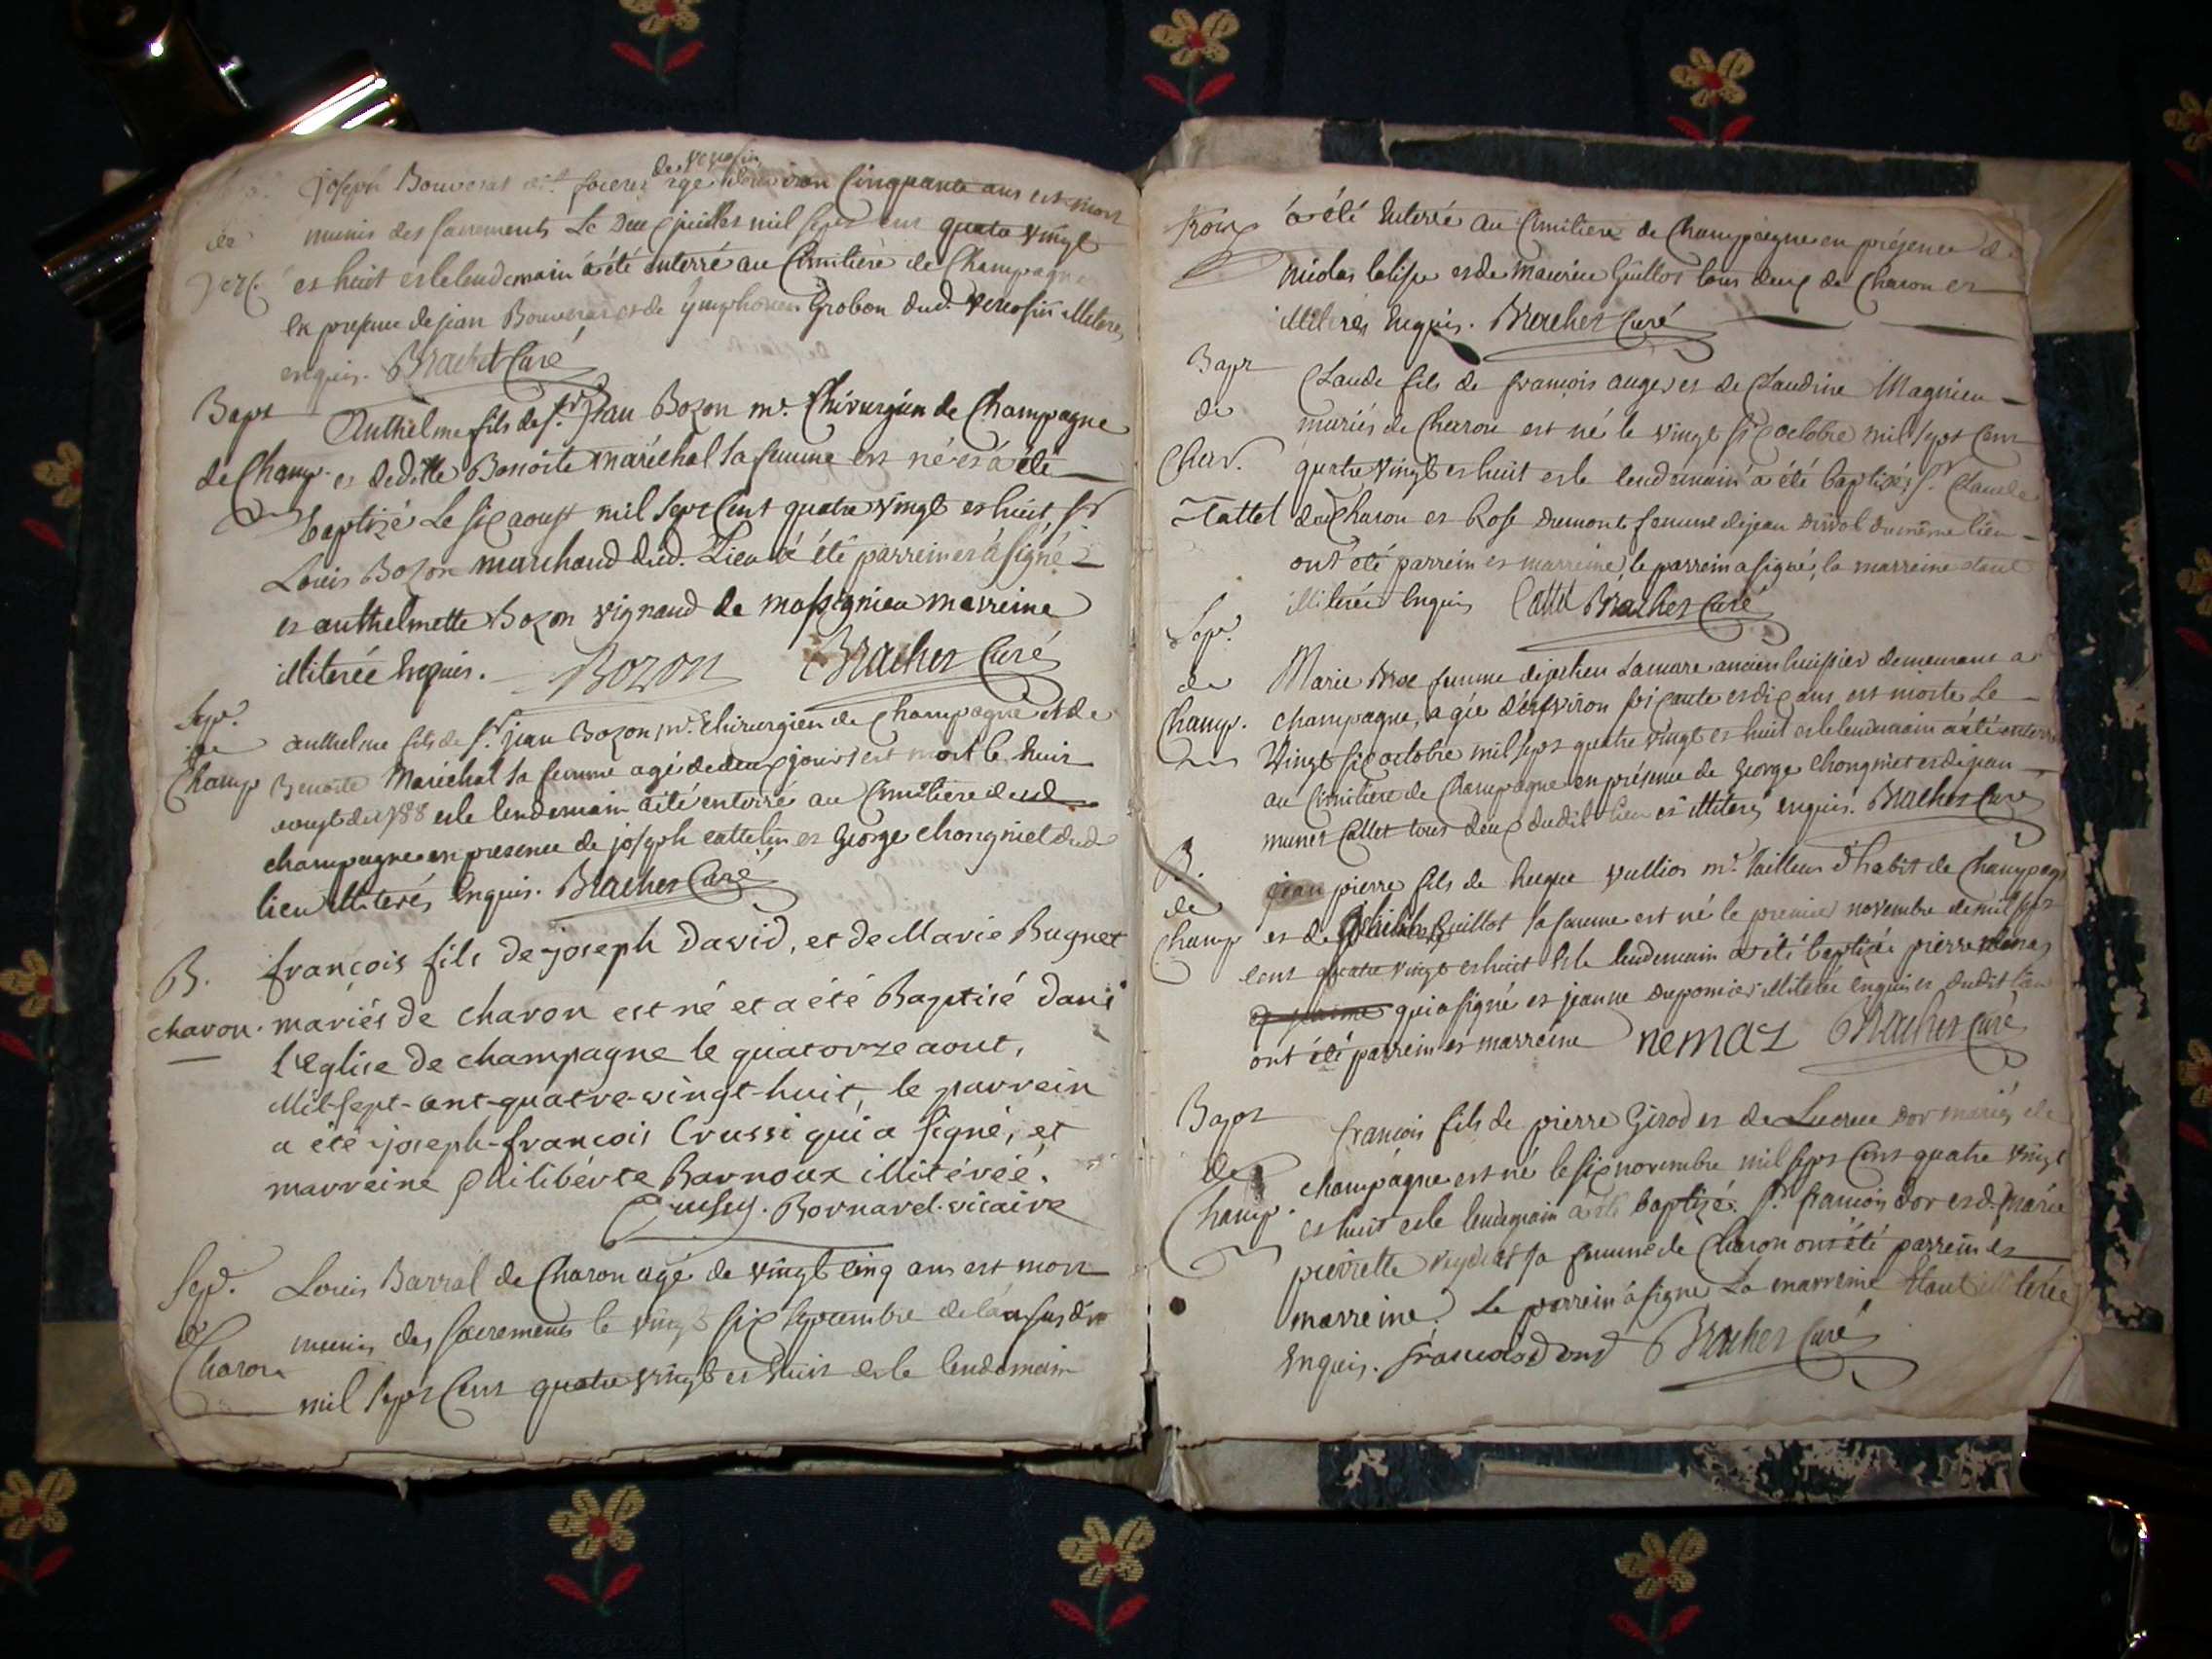 de Verosin
joseph Bouverat agé d'environ Cinquante ans est mort
munis des sacrements Le Deux juillet mil sept cent quatre vingt
et huit et le lendemain a été enterré au Cimitière de Champagne
en presence de jean Bouverat et de symphorien Grobon dud. Verosin illiterés
enquis. Brachet Curé
Bapt
de Champ.
Anthelme fils de sr. Jean Bozon mr. Chirurgien de Champagne
et de delle Benoite Maréchal sa femme est né et a été
baptizé Le six aoust mil sept Cent quatre vingt et huit, sr
Louis Bozon marchand dud. Lieu a été parrein et a signé
et anthelmette Bozon vignaud de massignieu marreine
illiterée enquis. Bozon Brachet Curé
Sep.
de
Champ
anthelme fils de sr. jean Bozon mr. Chirurgien de Champagne et de
Benoite Maréchal sa femme agé de deux jours est mort le huit
aoust de 1788 et le lendemain a été enterré au Cimitiere dud.
champagne en presence de joseph cattelin et George Chongniet dud
lieu illiterés enquis. Brachet Curé
B.
charon.
françois fils de joseph David, et de Marie Bugnet
mariés de charon est né et a été Baptisé dans
l'eglise de champagne le quatorze aout,
Mil-sept-cent-quatre-vingt-huit, le parrein
a été joseph-françois Crussi qui a signé, et
marreine philibérte Barnoux illitérée.
Crussy. Bornarel. vicaire
Sep.
de
Charon
Louis Barral de Charon agé de vingt cinq ans est mort
munis des sacrements le vingt six septembre de l'an susdit
mil sept Cent quatre vingt et huit et le lendemain
a été enterré au Cimitiere de Champagne en présence de
Nicolas et de Maurice Guillot tous deux de Charon et
illiterés enquis. Brachet Curé
Bapt
de
Char.
Claude fils de françois auger et de Claudine Magnien
mariés de Charon est né le vingt six octobre mil sept Cent
quatre vingt et huit et le lendemain a été baptizé; sr. Claude
Cattet dud Charon et Rose Dumont femme de jean du même lieu
ont été parrein et marreine, le parrein a signé, la marreine étant
illiterée enquis Cattet Brachet Curé
Sep.
de
Champ.
Marie femme de Lamure ancien huissier demeurant a
champagne, agée d'environ soixante et dix ans est morte Le
Vingt six octobre mil sept quatre vingt et huit et le lendemain a été enterré
au Cimitiere de Champagne en présence de George Chongniet et de jean
Callet tous deux dudit lieu et illiterés enquis. Brachet Curé
B.
de
Champ
jean pierre fils de hugue Vullio mr. Tailleur d'habit de Champagne
et de Guillot sa femme est né le premier novembre de mil sept
cent quatre vingt et huit et le lendemain a été baptizé pierre Nemaz
qui a signé et jeanne Dupomier illiterée enquise et dudit lieu
ont été parrein et marreine nemaz Brachet Curé
Bapt
de
Champ.
françois fils de pierre Girod et de Lucrece Dor mariés de
champagne est né le six novembre mil sept Cent quatre vingt
et huit et le lendemain a été baptizé. Sr. françois dor et d. Marie
pierrette sa femme de Charon ont été parrein et
marreine. Le parrein a signé La marreine étant illiterée
enquis. françois Brachet Curé